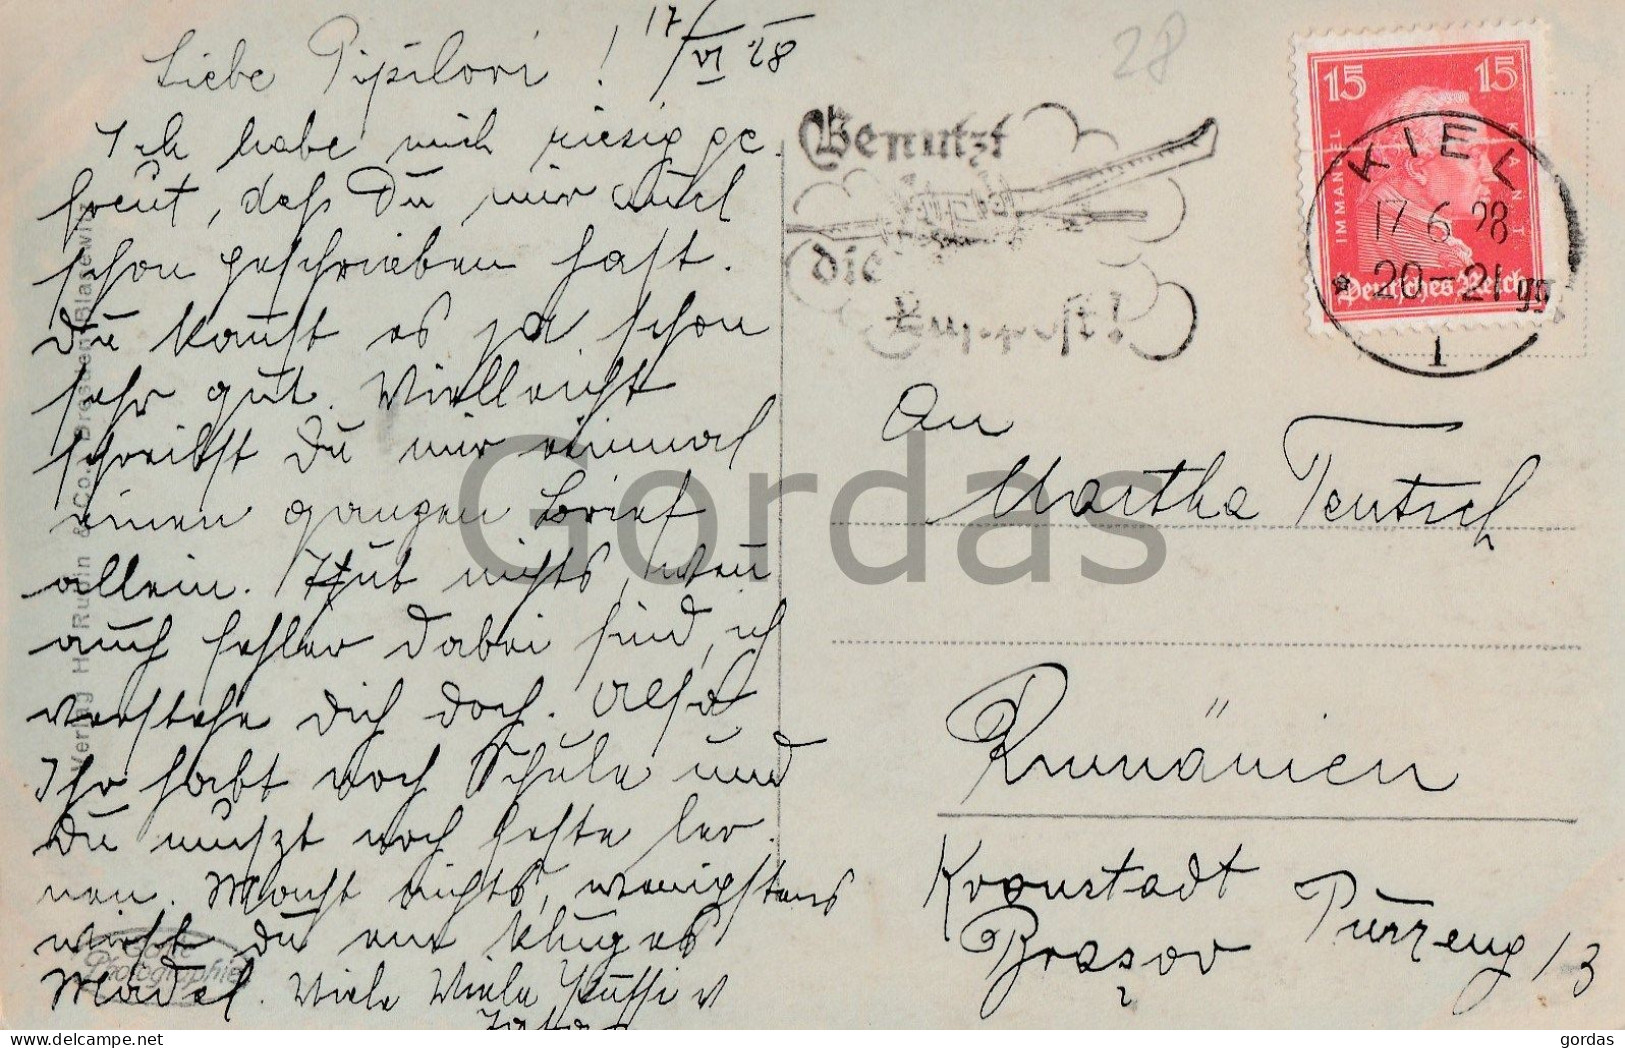 Liebe Pipilori! 17/VI 28
Ich habe mich riesig ge-
freut, daß Du mir auch
schon geschrieben hast.
Du kannst es ja schon
sehr gut. Vielleicht
schreibst Du mir einmal
einen ganzen Brief
allein. Thut nichts, wen̄
auch fehler dabei sind, ich
verstehe dich doch. Also
Ihr habt noch Schule und
Du muszt noch feste ler-
nen. Macht nichts, wenigstens
wirst Du ein kluges
Mädel. Viele Viele Pussi v
28
Benutzt
die
Luftpost!
15 15
IMMANUEL KANT
Deutsches Reich
KIEL
17.6.28
20-21
1
An
Martha Teutsch
Rumänien
Kronstadt
Brașov
13
Verlag H. Rubin & Co., Dresden-Blasewitz
Echte
Photographie
Gordas
gordas